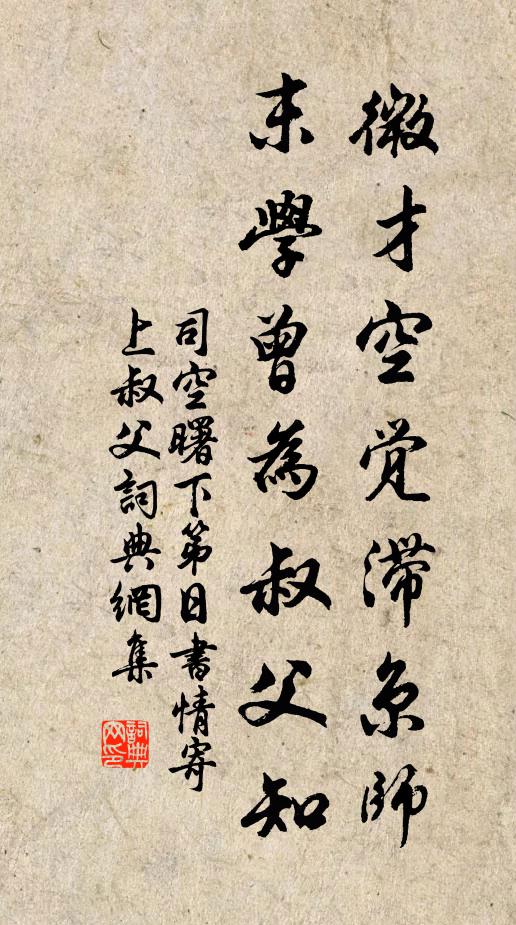 微才空觉滞京师
末学曾为叔父知
司空曙下第日書情寄
上叔父詞典網集
詞典